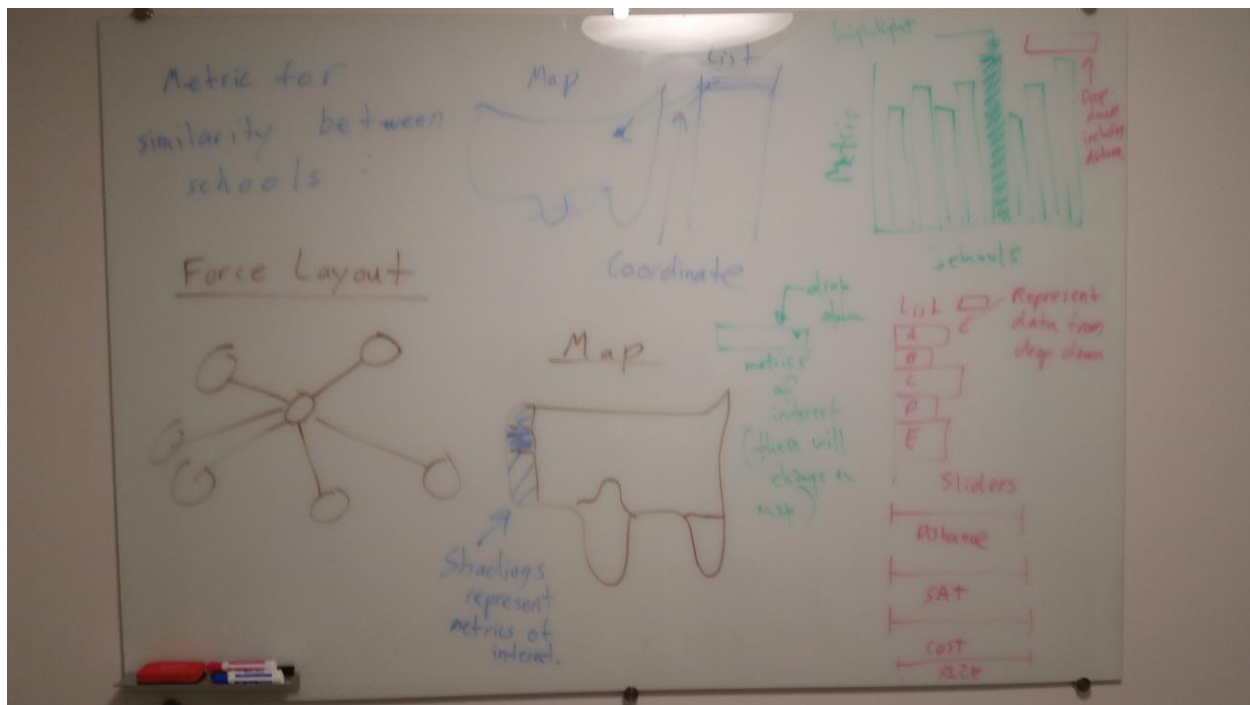 Metric for
similarity between
schools
Map
List
Coordinate
highlight
Metric
Schools
Drop
down
includes
distance
Force Layout
Map
drop
down
metrics
of
interest
(these will
change on
map)
Shadings
represent
metrics of
interest.
List
Represent
data from
drop down
A
B
C
D
E
Sliders
Distance
SAT
cost
size